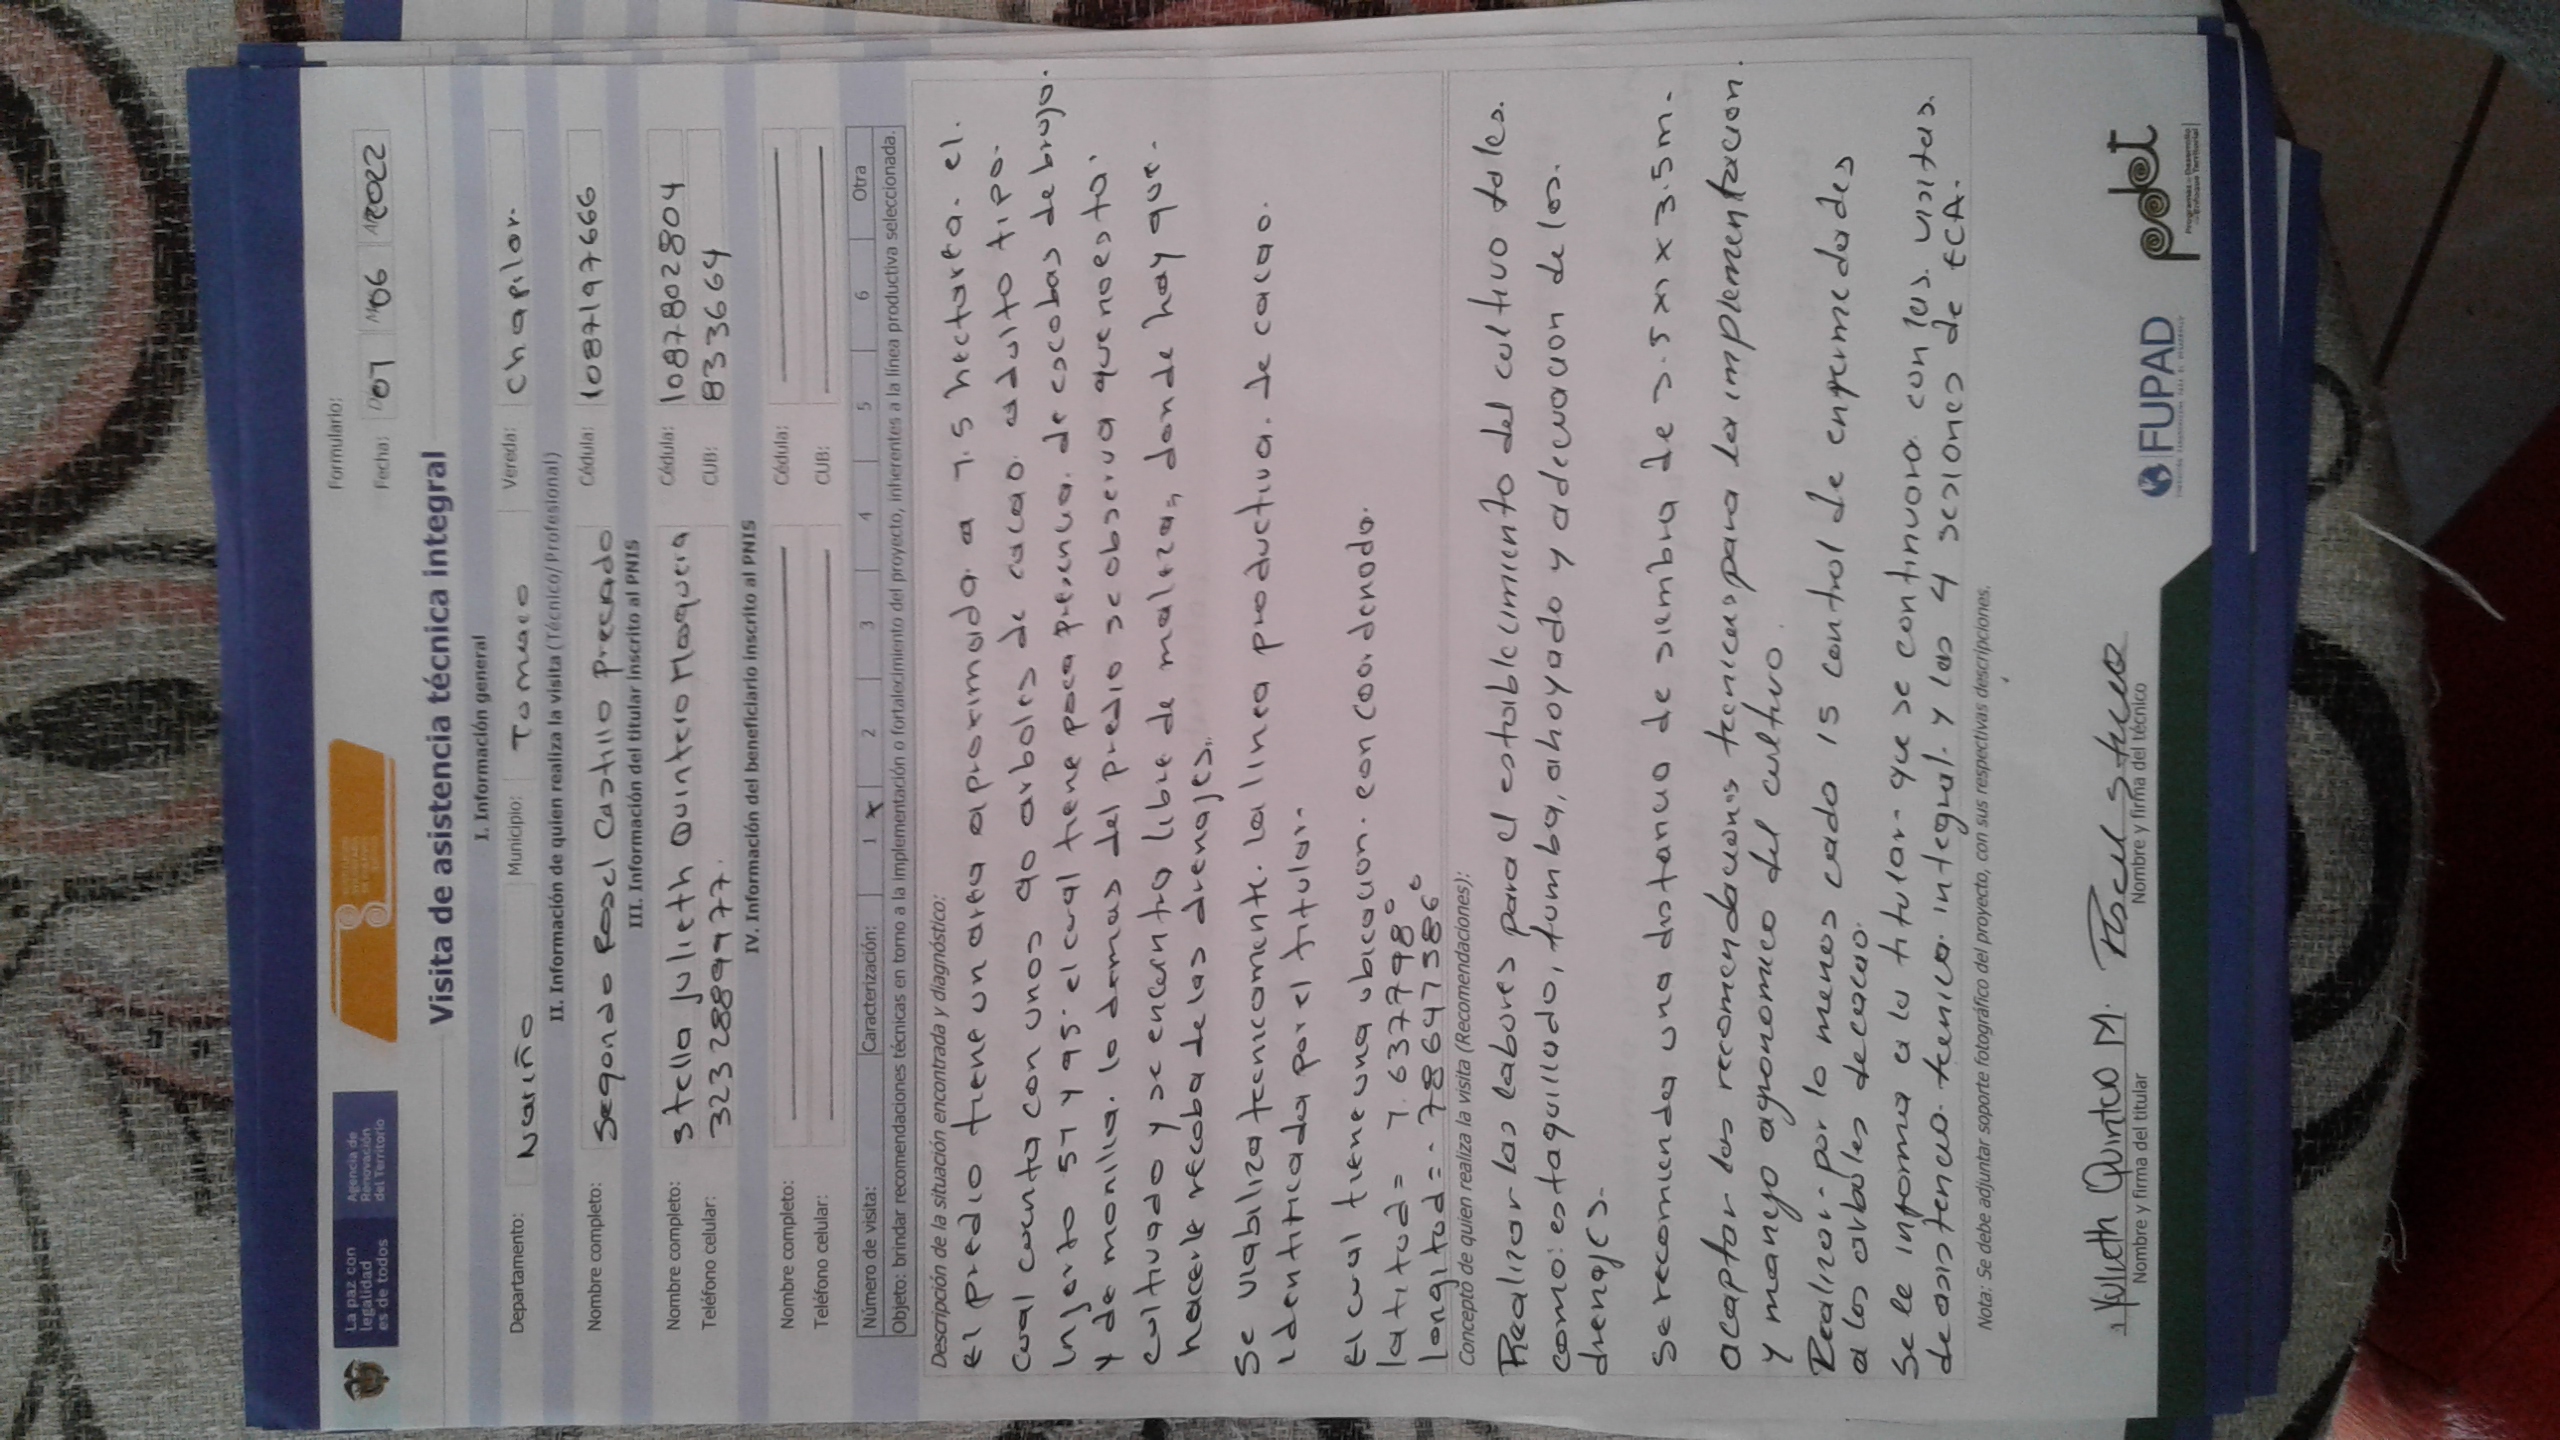 La paz con
legalidad
es de todos
Agencia de
Renovación
del Territorio
Formulario:
Fecha: D07 M06 A2022
Visita de asistencia técnica integral
I. Información general
Departamento: Nariño Municipio: Tomaco Vereda: chapilar.
II. Información de quien realiza la visita (Técnico/Profesional)
Nombre completo: Segondo Rosel Castillo Preciado Cédula: 1087197666
III. Información del titular inscrito al PNIS
Nombre completo: Stella Julieth Quintero Mosquera Cédula: 1087802804
Teléfono celular: 3232889977. CUB: 833664
IV. Información del beneficiario inscrito al PNIS
Nombre completo: Cédula:
Teléfono celular: CUB:
Número de visita: Caracterización: 1 x 2 3 4 5 6 Otra
Objeto: brindar recomendaciones técnicas en torno a la implementación o fortalecimiento del proyecto, inherentes a la línea productiva seleccionada.
Descripción de la situación encontrada y diagnóstico:
el predio tiene un area aproximada a 1.5 hectarea. el.
cual cuenta con unos 90 arboles de cacao. adulto tipo.
injerto 51 y 95. el cual tiene poca presencia. de escobas de brujo.
y de monilia. lo demas del predio se observa que no esta.
cultivado y se encuentra libre de maleza, donde hay que.
hacerle recoba de las drenajes.
Se viabiliza tecnicamente. la linea productiva. de cacao.
identificada por el titular.
el cual tiene una ubicacion. con coordenada.
latitud = 1.637798°
longitud = -78.647386°
Concepto de quien realiza la visita (Recomendaciones):
Realizar las labores para el establecimiento del cultivo tales.
como: estaquillado, tumba, ahoyado y adecuacion de los.
drenajes.
Se recomienda una distancia de siembra de 3.5m x 3.5m.
acaptar las recomendaciones tecnicas para la implementacion.
y manejo agronomico del cultivo.
Realizar por lo menos cada 15 control de enfermedades
a los arboles de cacao.
Se le informa a la titular que se continuara con las visitas.
de asistencia tecnica integral. y las 4 sesiones de ECA.
Nota: Se debe adjuntar soporte fotográfico del proyecto, con sus respectivas descripciones.
Yulieth Quintero M.
Nombre y firma del titular
Nombre y firma del técnico
FUPAD
pdet
Programas de Desarrollo
con Enfoque Territorial